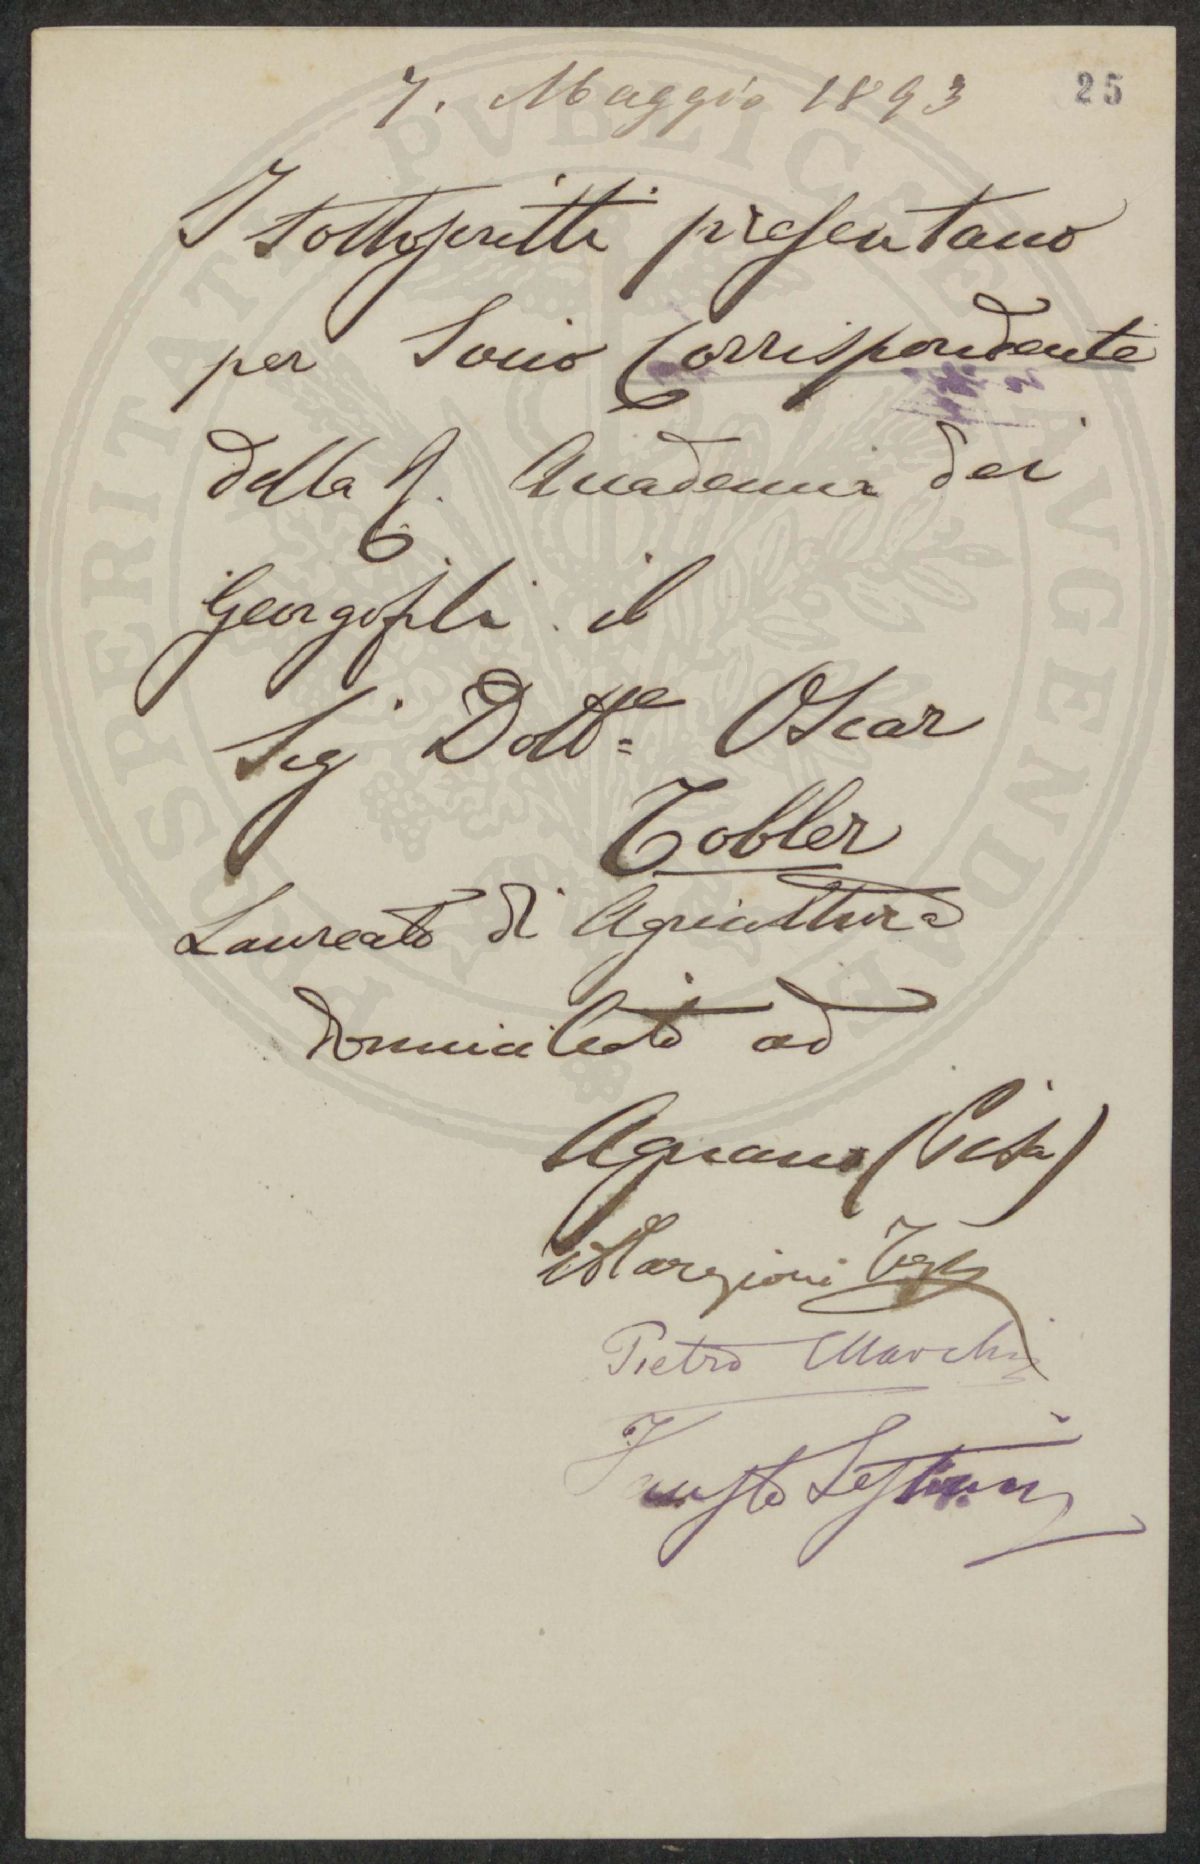 7. Maggio 1893
25
I sottoscritti presentano
per Socio Corrispondente
della R. Accademia dei
Georgofili il
Sig Dott.re Oscar
Tobler
Laureato di Agricoltura
domiciliato ad
Agnano (Pisa)
Pietro Marchi
Fausto Sestini
PROSPERITATI PVBLICAE AVGENDAE